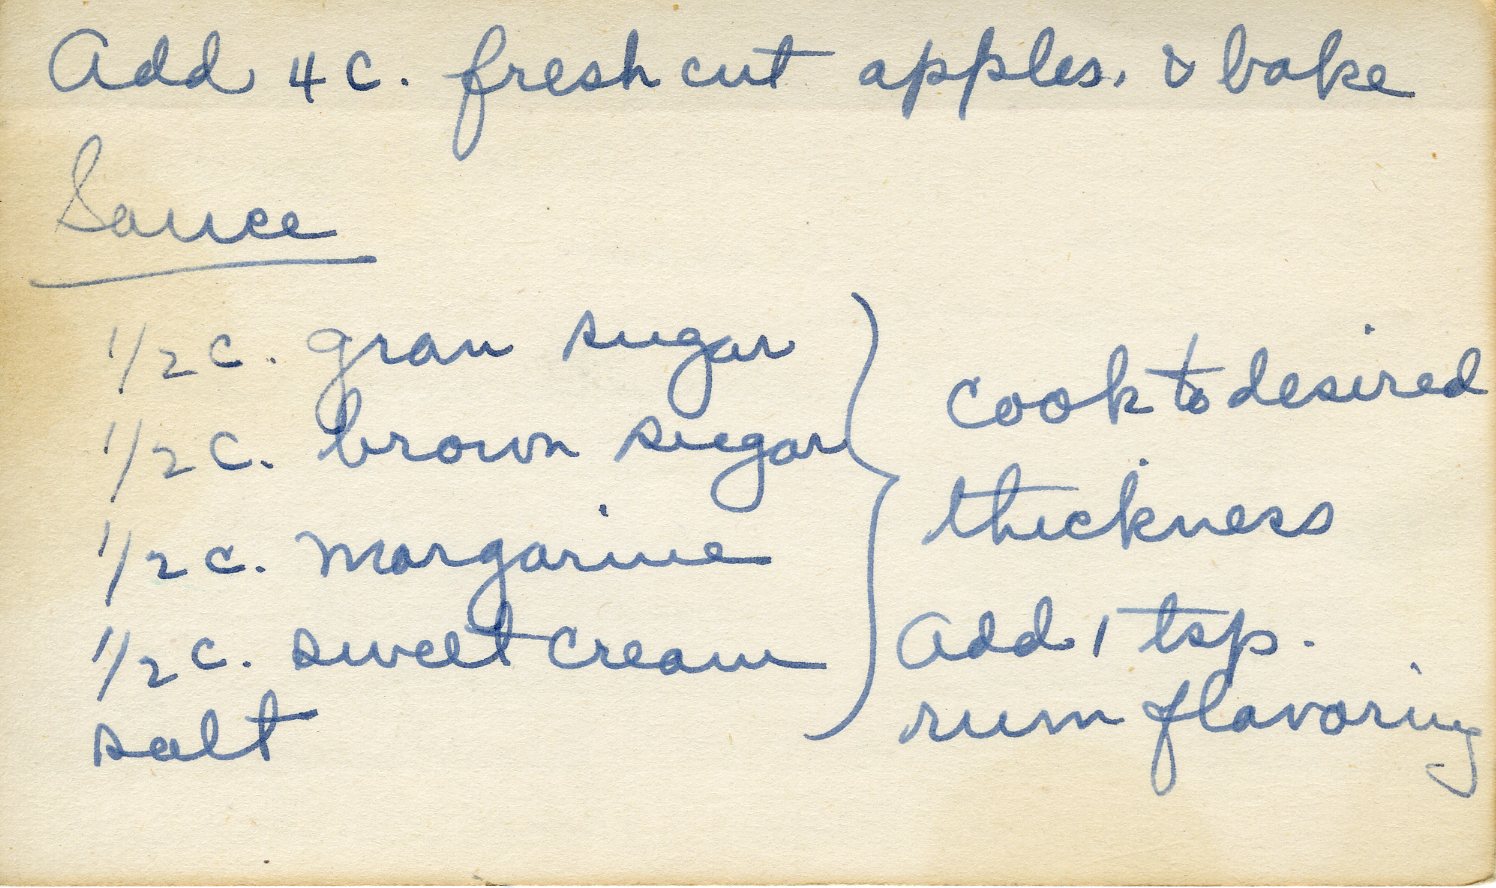 Add 4 c. fresh cut apples. & bake
Sauce
1/2 c. gran sugar
1/2 c. brown sugar
1/2 c. margarine
1/2 c. sweet cream
salt
cook to desired
thickness
Add 1 tsp.
rum flavoring